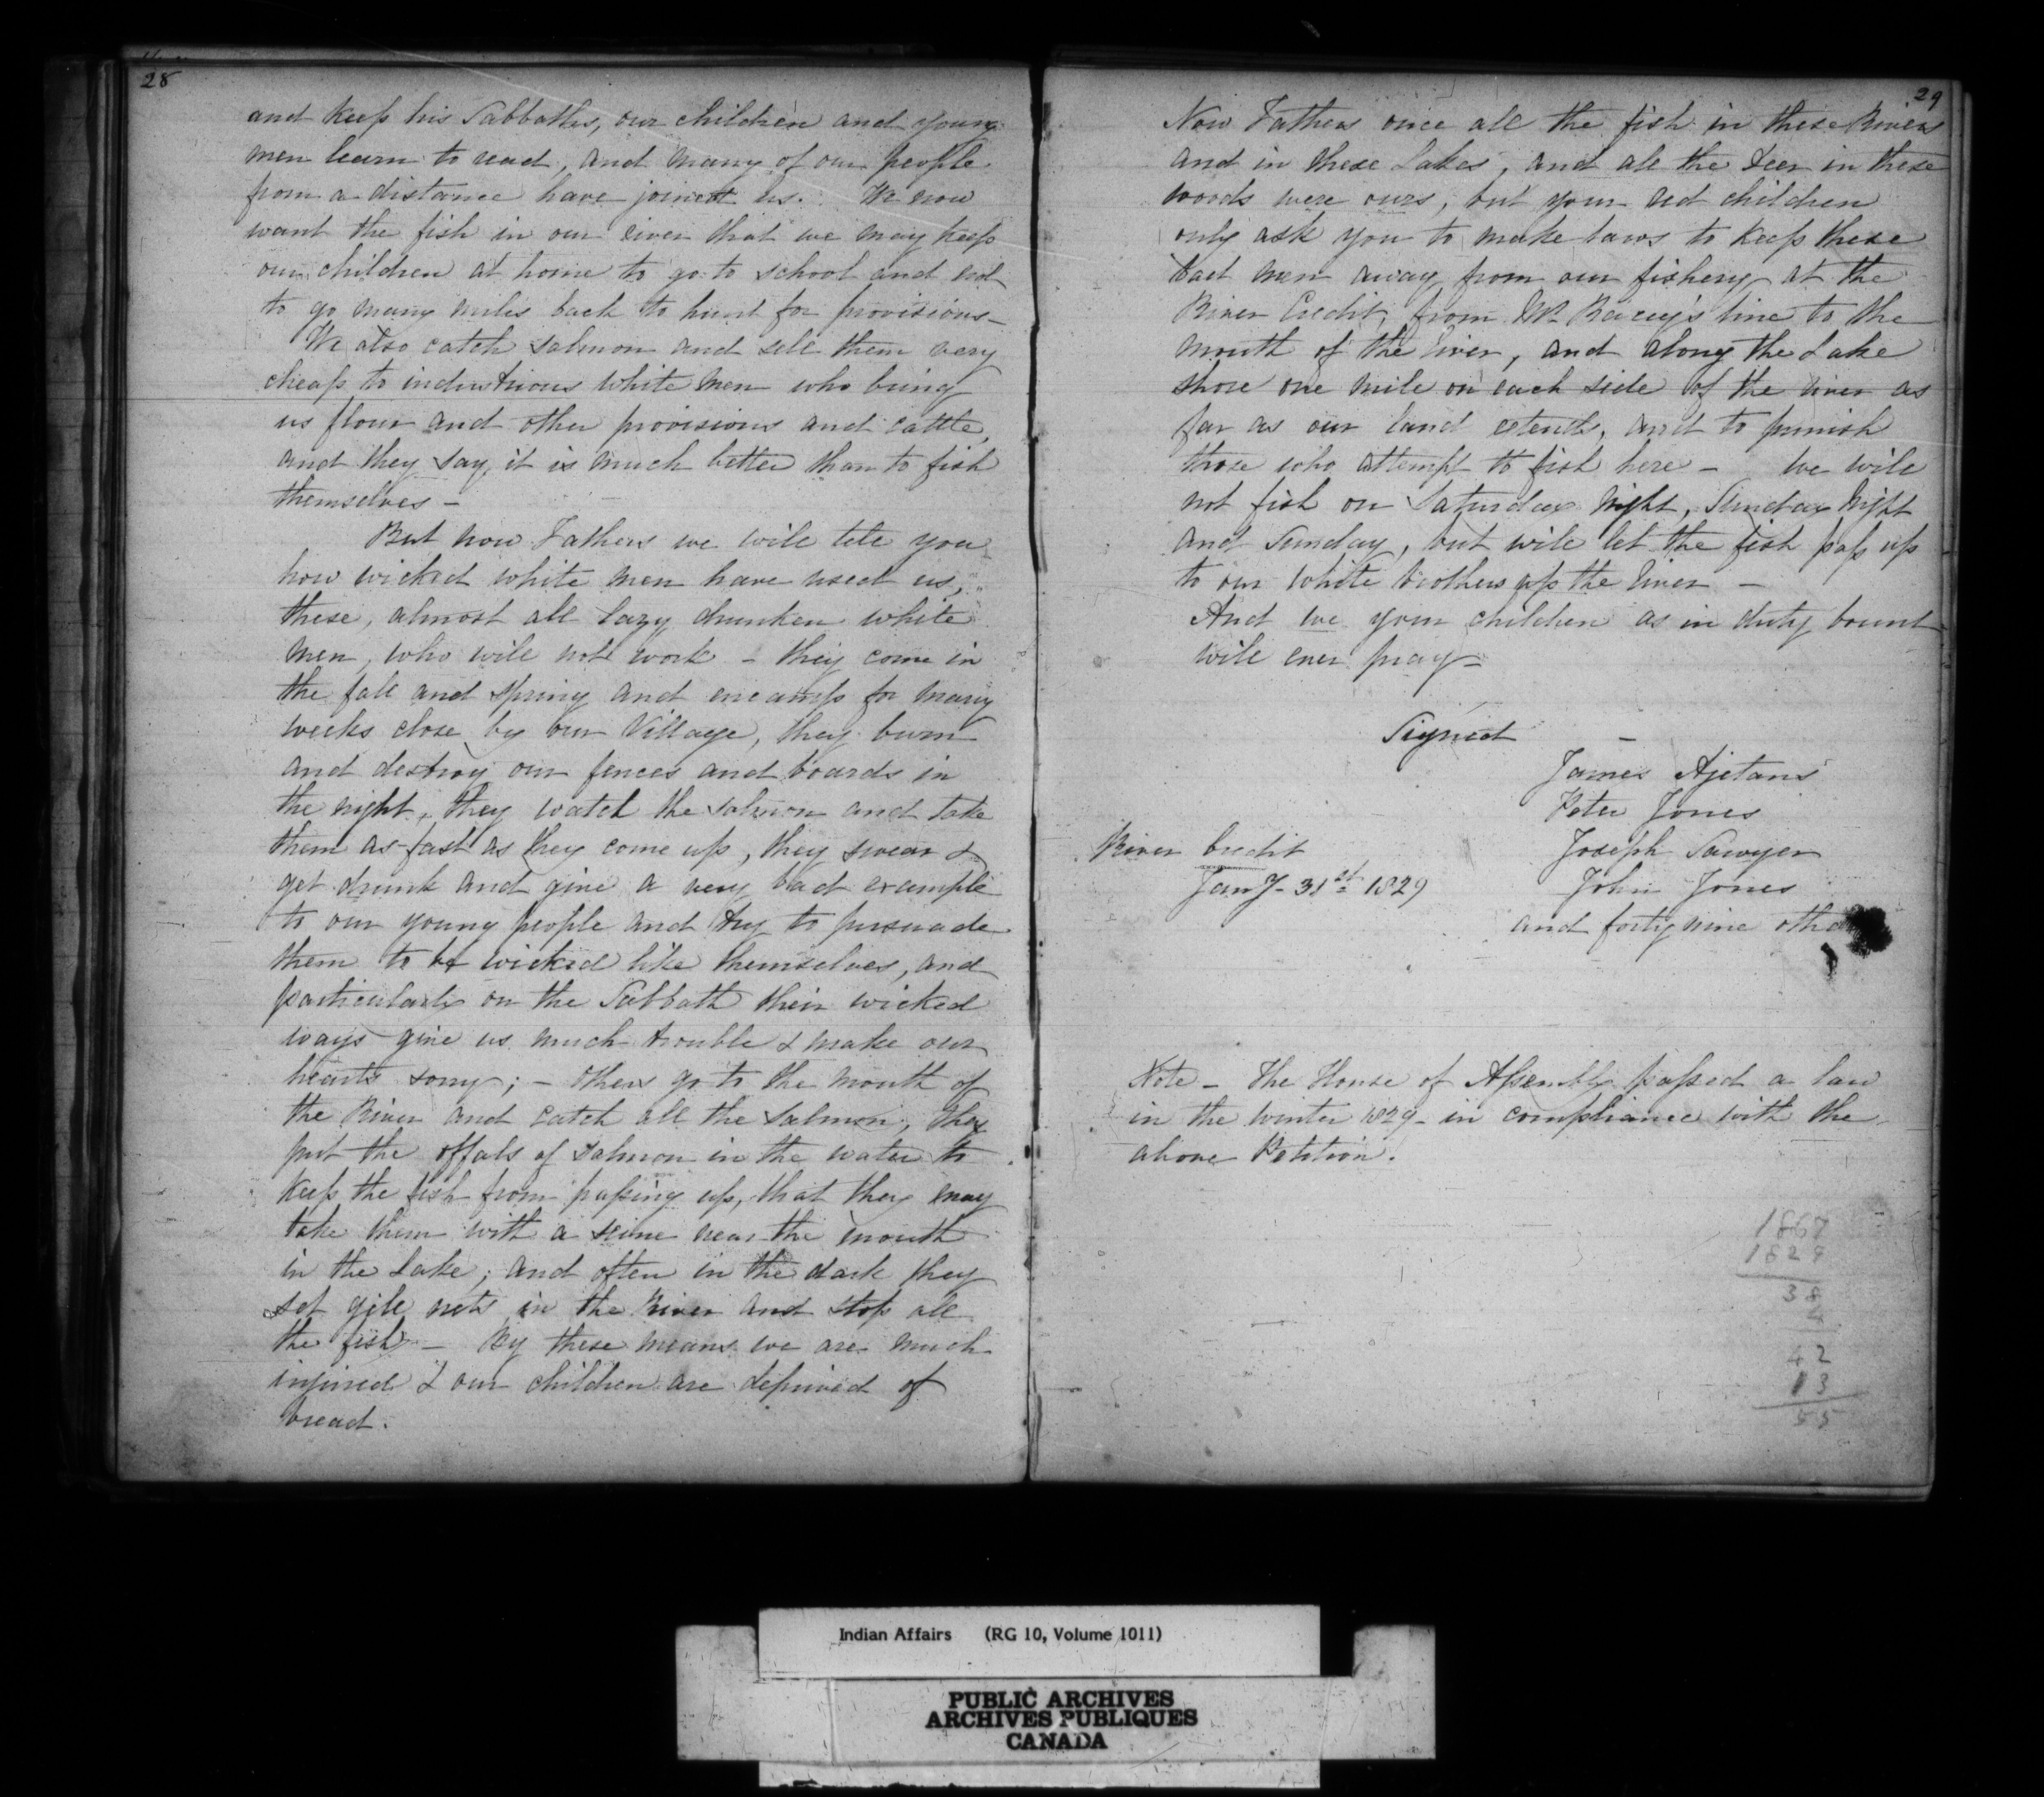 28
and keep his Sabbaths, our children and young
men learn to read, and many of our people
from a distance have joined us. We now
want the fish in our river that we may keep
our children at home to go to school and not
to go many miles back to hunt for provisions_
We also catch salmon and sell them very
cheap to industrious white men who bring
us flour and other provisions and cattle,
and they say, it is much better than to fish
themselves -
But now Fathers we will tell you
how wicked white men have used us,
these, almost all lazy drunken white
men, who will not work - they come in
the fall and spring and encamp for many
weeks close by our Village, they burn
and destroy our fences and boards in
the night, they watch the salmon and take
them as fast as they come up, they swear &
get drunk and give a very bad example
to our young people and try to persuade
them to be wicked like themselves, and
particularly on the Sabbath their wicked
ways give us much trouble & make our
hearts sorry; - others go to the mouth of
the River and catch all the Salmon, they
put the offals of salmon in the water to
keep the fish from passing up, that they may
take them with a seine near the mouth
in the Lake; and often in the dark they
set gill nets in the River and stop all
the fish - By these means we are much
injured & our children are deprived of
bread.
29
Now Fathers once all the fish in these Rivers
and in these Lakes, and all the deer in these
woods were ours, but your red children
only ask you to make laws to keep these
bad men away from our fishery at the
River Credit, from Mr. Racey's line to the
mouth of the river, and along the Lake
shore one mile on each side of the river as
far as our land extends, and to punish
those who attempt to fish here - We will
not fish on Saturday night, Sunday Night
and Sunday, but will let the fish pass up
to our white brothers up the river -
And we your children as in duty bound
will ever pray -
Signed -
James Ajetans
Peter Jones
Joseph Sawyer
River Credit
John Jones
Jany. 31st 1829
and forty nine others
Note - The House of Assembly passed a law
in the winter 1829 - in compliance with the
above Petition.
1867
1829
38
4
42
13
55
Indian Affairs (RG 10, Volume 1011)
PUBLIC ARCHIVES
ARCHIVES PUBLIQUES
CANADA